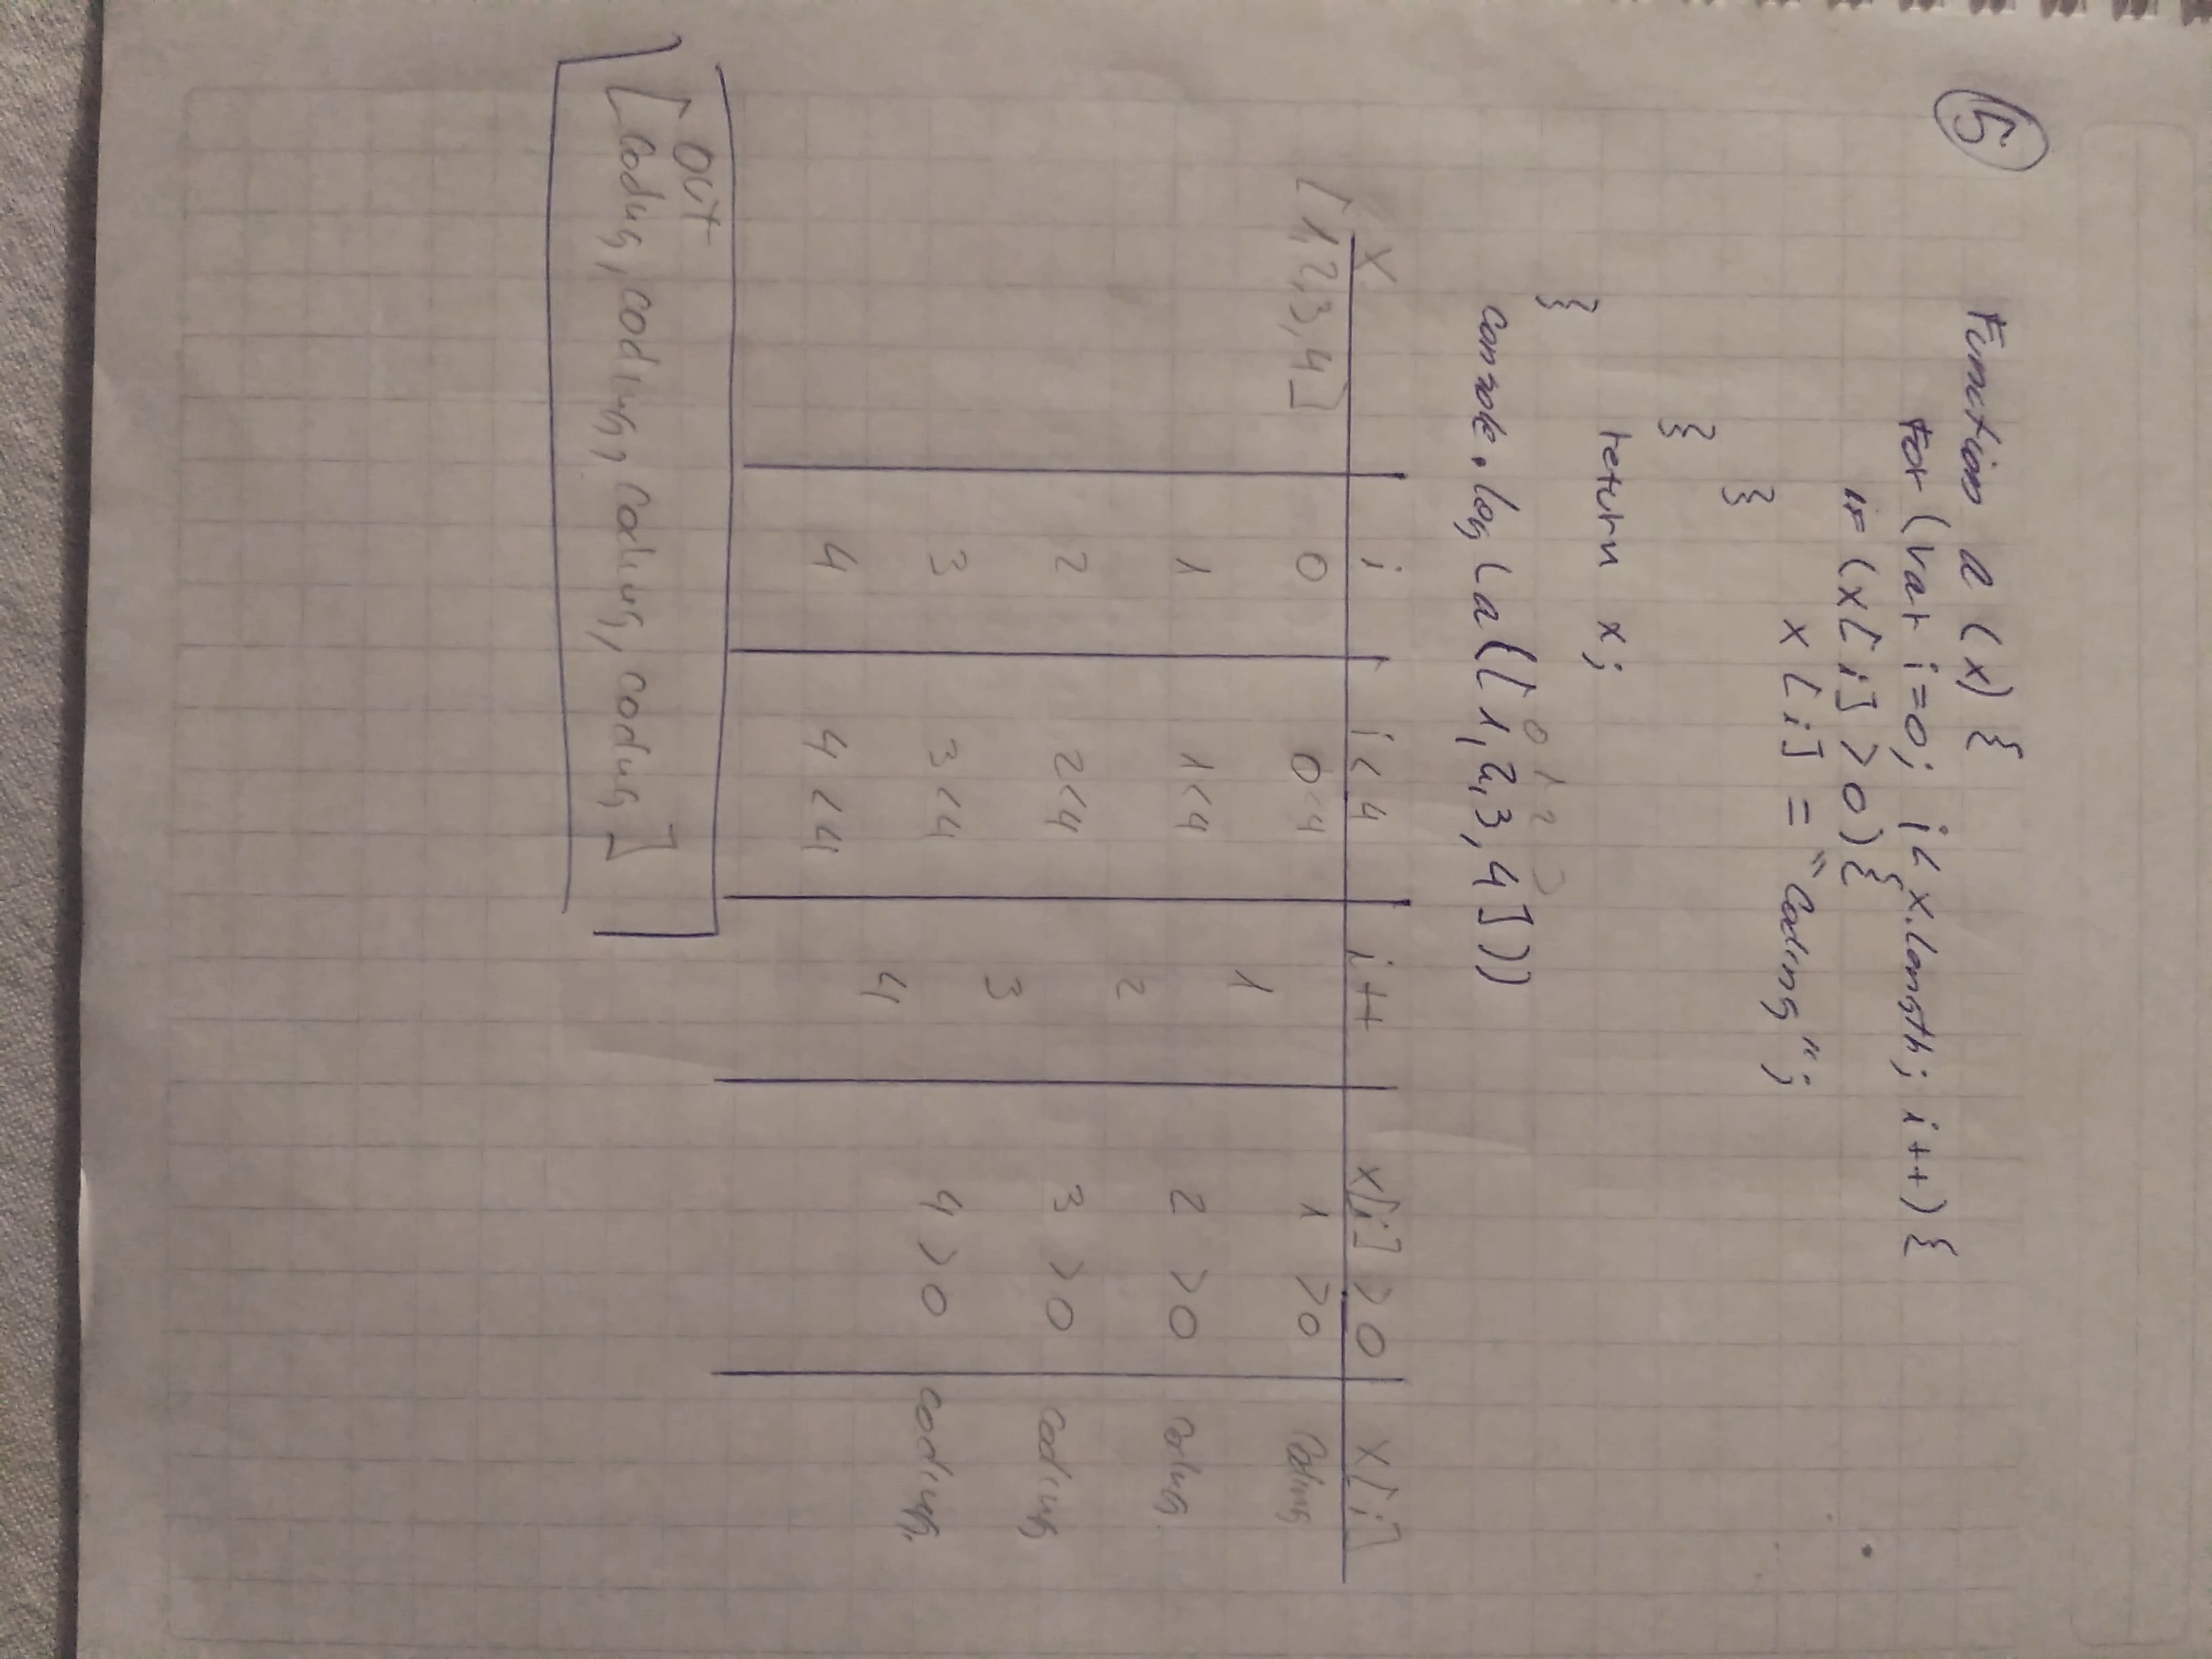 5
Function a (x) {
For (var i=0; i < x.length; i++) {
if (x[i] > 0) {
x[i] = "Coding";
}
}
return x;
}
0 1 2 3
console.log (a([1,2,3,4]))
x i i<4 i++ x[i] > 0 x[i]
[1,2,3,4] 0 0<4 1 > 0 Coding
1
1 1<4 2 > 0 Coding
2
2 2<4 3 > 0 coding
3
3 3<4 4 > 0 coding
4
4 4<4
OUT
[Coding, coding, coding, coding]